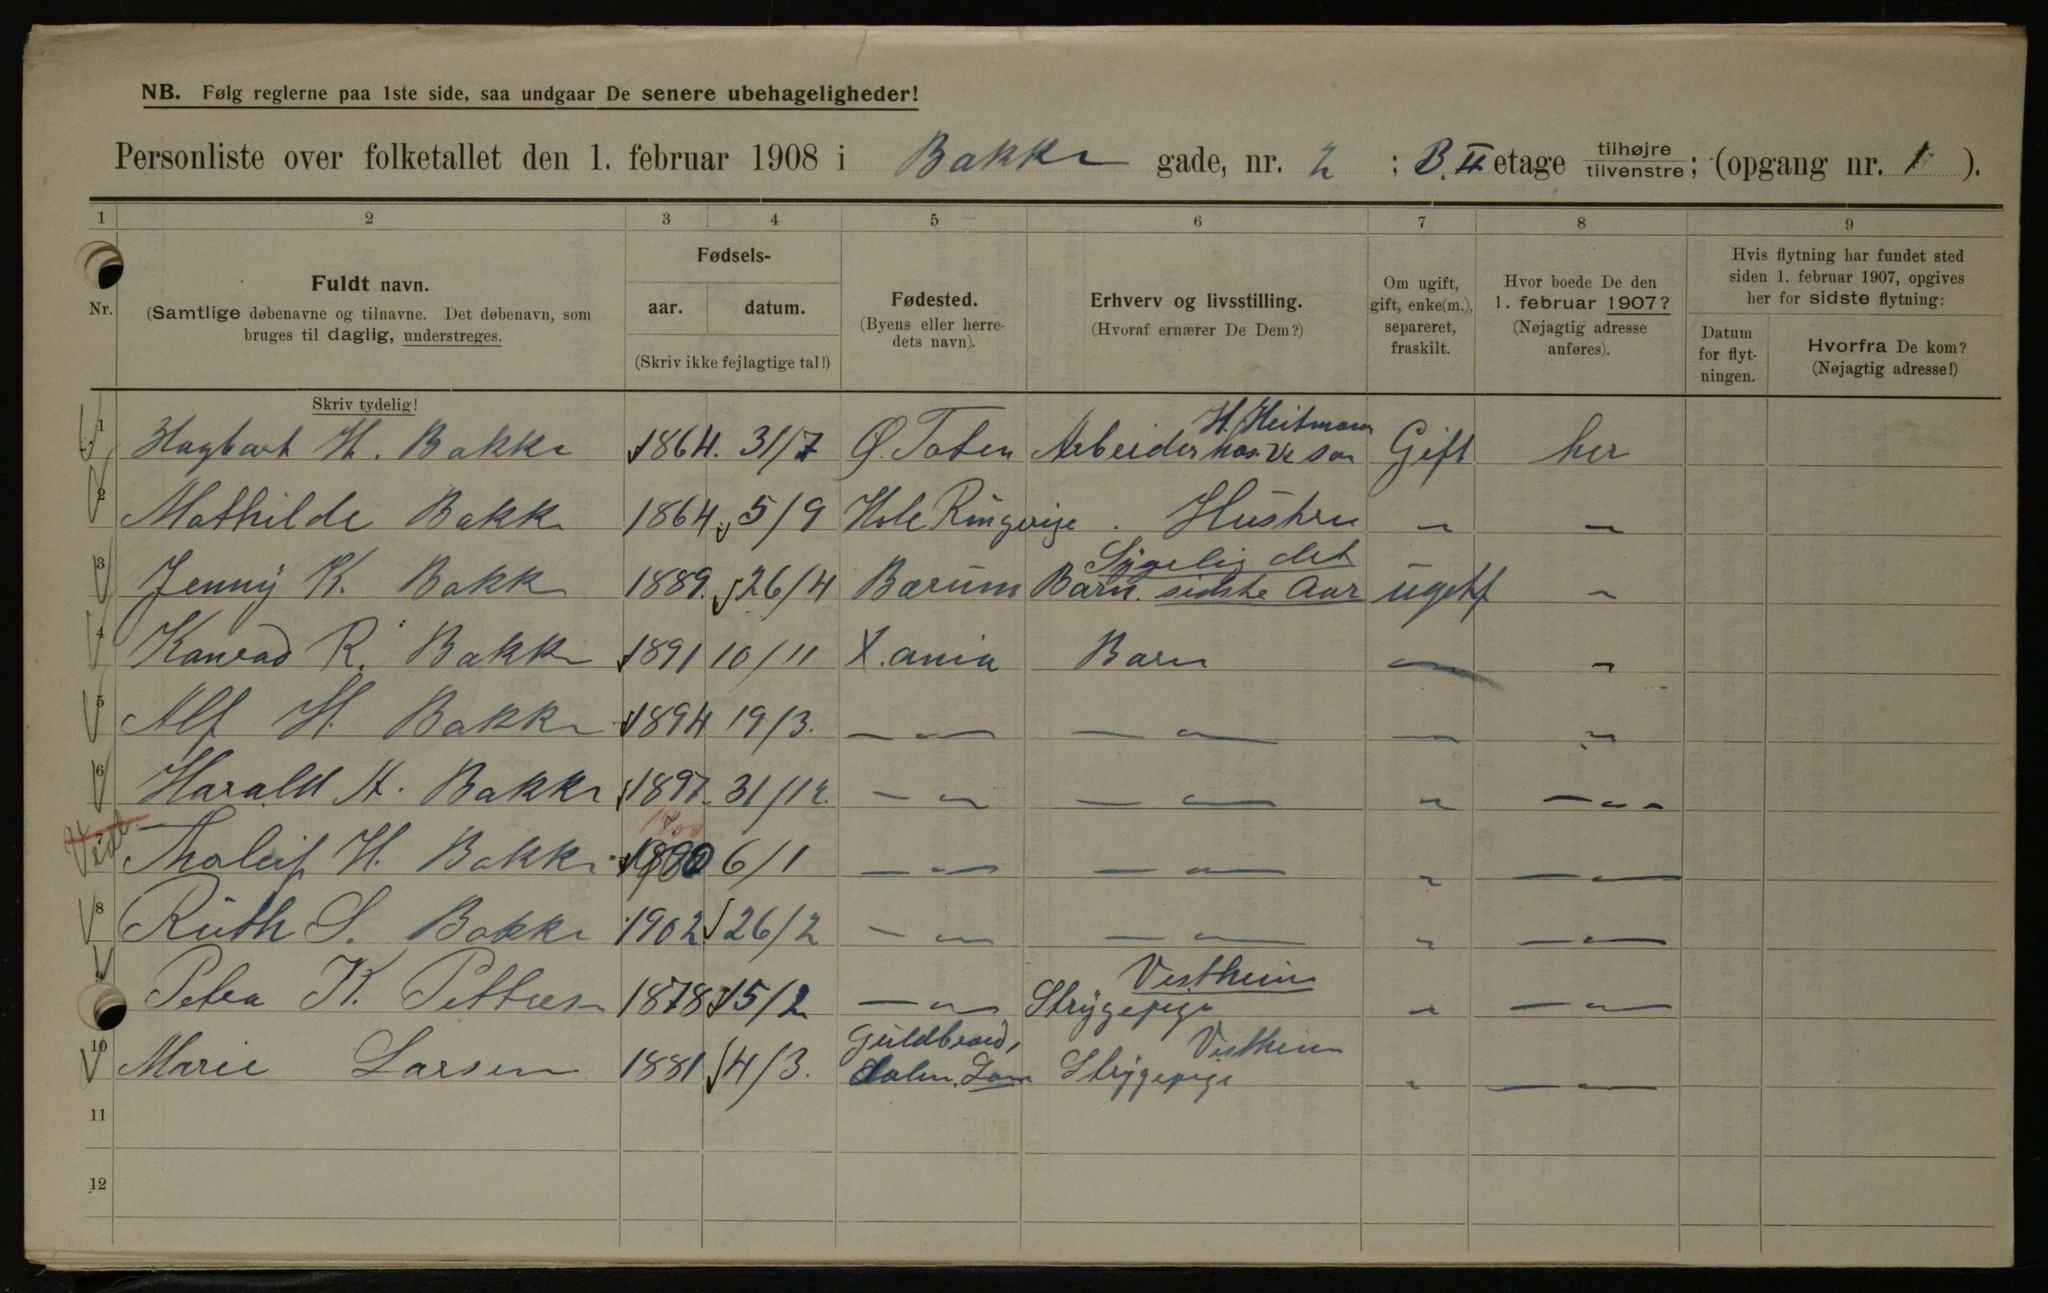 NB. Følg reglerne paa 1ste side, saa undgaar De senere ubehageligheder!
Personliste over folketallet den 1. februar 1908 i Bakke gade, nr. 2 ; B. II etage tilhøjre / tilvenstre ; (opgang nr. 1 ).
1 2 3 4 5 6 7 8 9
Nr.
Fuldt navn.
(Samtlige døbenavne og tilnavne. Det døbenavn, som
bruges til daglig, understreges.
Skriv tydelig!
Fødsels-
aar. datum.
(Skriv ikke fejlagtige tal!)
Fødested.
(Byens eller herre-
dets navn).
Erhverv og livsstilling.
(Hvoraf ernærer De Dem?)
Om ugift,
gift, enke(m.),
separeret,
fraskilt.
Hvor boede De den
1. februar 1907?
(Nøjagtig adresse
anføres).
Hvis flytning har fundet sted
siden 1. februar 1907, opgives
her for sidste flytning:
Datum
for flyt-
ningen.
Hvorfra De kom?
(Nøjagtig adresse!)
H. Heitmann
1 Hagbart H. Bakke 1864. 31/7 Ø. Toten Arbeider hos Gift her
2 Mathilde Bakke 1864 5/9 Hole Ringerige . Hustru " "
Sygelig det
3 Jenny K. Bakke 1889. 26/4 Bærum Barn. sidste Aar ugift "
4 Konrad R. Bakke 1891 10/11 X.ania Barn — "
5 Alf H. Bakke 1894 19/3. — " — — " — — "
6 Harald A. Bakke 1897. 31/12. — " — — " — " — " —
1900
7 Tholeif H. Bakke 6/1 — " — — " — " — " —
8 Ruth S. Bakke 1902 26/2 — " — — " — " — " —
Vestheim
9 Petra K. Pettersen 1878 15/2 — " — Strygepige " — " —
Guldbrand, Vestheim
10 Marie Larsen 1881 4/3. dalen. Lom Strygepige " — " —
11
12